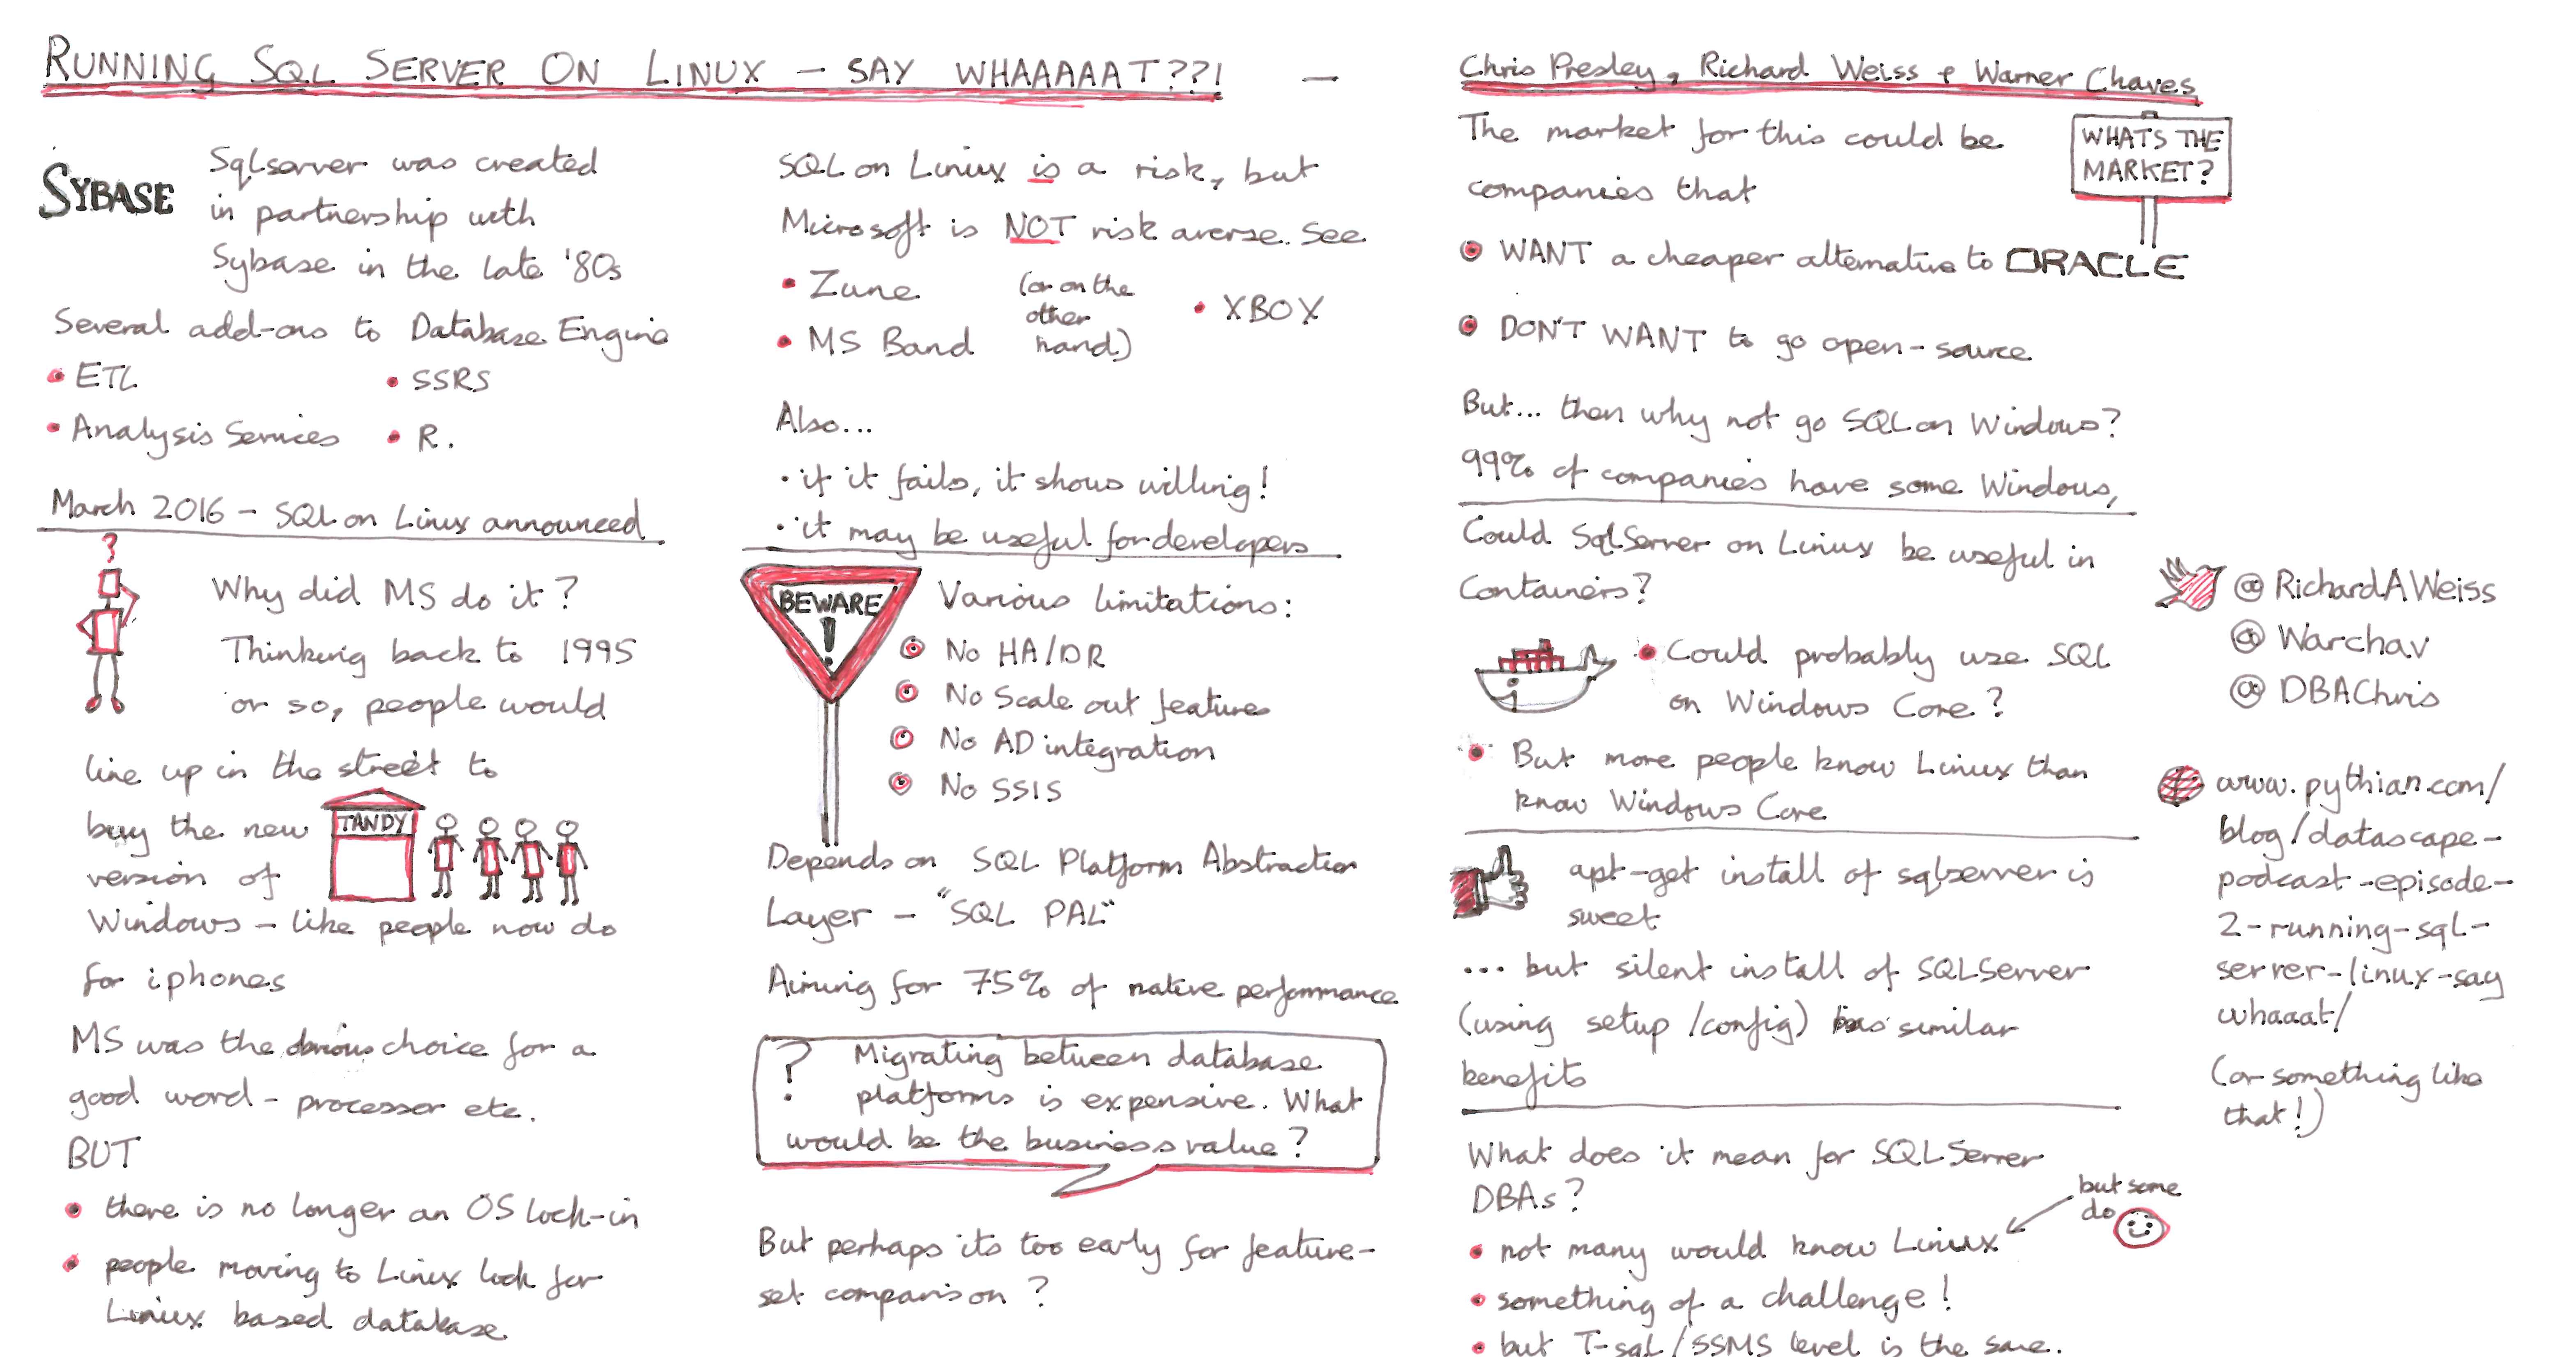 RUNNING SQL SERVER ON LINUX – SAY WHAAAAAT??! –
Chris Presley, Richard Weiss + Warner Chaves
SYBASE
Sqlserver was created
in partnership with
Sybase in the late '80s
Several add-ons to Database Engine
• ETL
• SSRS
• Analysis Services
• R.
March 2016 – SQL on Linux announced
?
Why did MS do it?
Thinking back to 1995
or so, people would
line up in the street to
buy the new
version of
TANDY
Windows – like people now do
for iphones
MS was the obvious choice for a
good word-processor etc.
BUT
• there is no longer an OS lock-in
• people moving to Linux look for
Linux based database
SQL on Linux is a risk, but
Microsoft is NOT risk averse. See
• Zune
• MS Band
(or on the
other
hand)
• XBOX
Also...
• if it fails, it shows willing!
• it may be useful for developers
BEWARE
!
Various limitations:
No HA/DR
No Scale out features
No AD integration
No SSIS
Depends on SQL Platform Abstraction
Layer – "SQL PAL"
Aiming for 75% of native performance
? Migrating between database
platforms is expensive. What
would be the business value?
But perhaps its too early for feature-
set comparison?
The market for this could be
companies that
WHATS THE
MARKET?
WANT a cheaper alternative to ORACLE
DON'T WANT to go open-source
But... then why not go SQL on Windows?
99% of companies have some Windows,
Could SqlServer on Linux be useful in
Containers?
• Could probably use SQL
on Windows Core?
• But more people know Linux than
know Windows Core
apt-get install of sqlserver is
sweet
... but silent install of SQLServer
(using setup /config) has similar
benefits
What does it mean for SQLServer
DBAs?
• not many would know Linux
but some
do
• something of a challenge!
• but T-sql/SSMS level is the same.
@RichardAWeiss
@Warchav
@DBAChris
www.pythian.com/
blog/datascape-
podcast-episode-
2-running-sql-
server-linux-say
whaaat/
(or something like
that!)